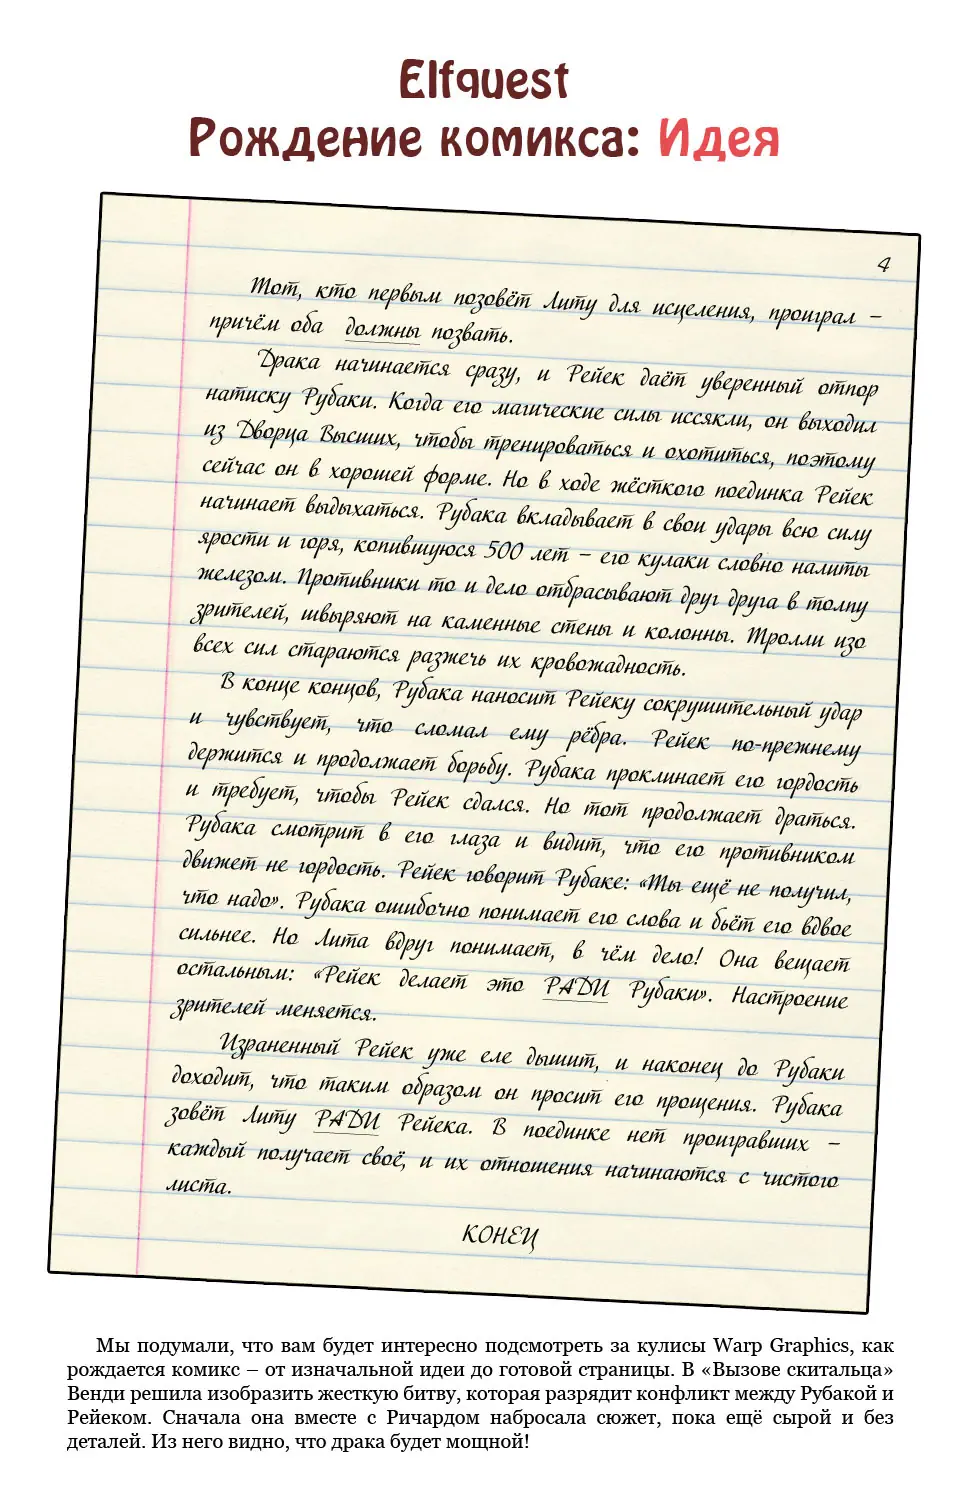 Elfquest
Рождение комикса: Идея
4
Тот, кто первым позовёт Литу для исцеления, проиграл –
причём оба должны позвать.
Драка начинается сразу, и Рейек даёт уверенный отпор
натиску Рубаки. Когда его магические силы иссякли, он выходил
из Дворца Высших, чтобы тренироваться и охотиться, поэтому
сейчас он в хорошей форме. Но в ходе жёсткого поединка Рейек
начинает выдыхаться. Рубака вкладывает в свои удары всю силу
ярости и горя, копившуюся 500 лет – его кулаки словно налиты
железом. Противники то и дело отбрасывают друг друга в толпу
зрителей, швыряют на каменные стены и колонны. Тролли изо
всех сил стараются разжечь их кровожадность.
В конце концов, Рубака наносит Рейеку сокрушительный удар
и чувствует, что сломал ему рёбра. Рейек по-прежнему
держится и продолжает борьбу. Рубака проклинает его гордость
и требует, чтобы Рейек сдался. Но тот продолжает драться.
Рубака смотрит в его глаза и видит, что его противником
движет не гордость. Рейек говорит Рубаке: «Ты ещё не получил,
что надо». Рубака ошибочно понимает его слова и бьёт его вдвое
сильнее. Но Лита вдруг понимает, в чём дело! Она вещает
остальным: «Рейек делает это РАДИ Рубаки». Настроение
зрителей меняется.
Израненный Рейек уже еле дышит, и наконец до Рубаки
доходит, что таким образом он просит его прощения. Рубака
зовёт Литу РАДИ Рейека. В поединке нет проигравших –
каждый получает своё, и их отношения начинаются с чистого
листа.
КОНЕЦ
Мы подумали, что вам будет интересно подсмотреть за кулисы Warp Graphics, как
рождается комикс – от изначальной идеи до готовой страницы. В «Вызове скитальца»
Венди решила изобразить жесткую битву, которая разрядит конфликт между Рубакой и
Рейеком. Сначала она вместе с Ричардом набросала сюжет, пока ещё сырой и без
деталей. Из него видно, что драка будет мощной!